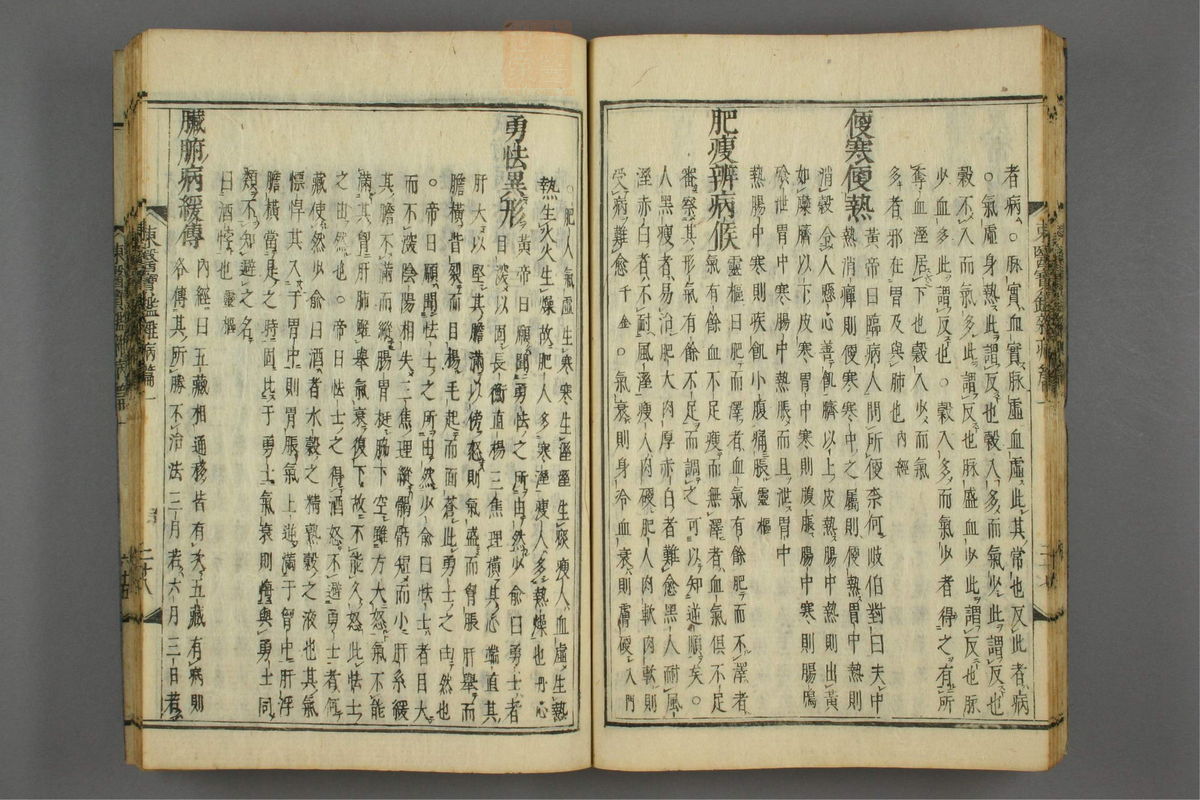 者病○脉實血實脉虛血虛此其常也反此者病
○氣虛身熱此謂反也穀入多而氣少此謂反也
穀不入而氣多此謂反也脉盛血少此謂反也脉
少血多此謂反也○穀入多而氣少者得之有所
奪血湿居下也穀入少而氣
多者邪在胃及與肺也內經
便寒便熱
黃帝曰臨病人問所便柰何歧伯對曰夫中
熱消癉則便寒寒中之屬則便熱胃中熱則
消穀令人懸心善飢臍以上皮熱腸中熱則出黃
如糜臍以下皮寒胃中寒則腹脹腸中寒則腸鳴
飱泄胃中寒腸中熱脹而且泄胃中
熱腸中寒則疾飢小腹痛脹靈樞
肥瘦辨病候
靈樞曰肥而澤者血氣有餘肥而不澤者
氣有餘血不足瘦而無澤者血氣俱不足
審察其形氣有餘不足而調之可以知逆順矣○
人黑瘦者易治肥大肉厚赤白者難愈黑人耐風
溼赤白者不耐風溼瘦人肉硬肥人肉軟肉軟則
受病難愈千金○氣衰則身冷血衰則膚硬入門
○肥人氣虛生寒寒生溼溼生痰瘦人血虛生熱
熱生火火生燥故肥人多寒溼瘦人多熱燥也丹心
勇怯異形
黃帝曰願聞勇怯之所由然少俞曰勇士者
目深以固長衝直楊三焦理橫其心端直其
肝大以堅其膽滿以傍怒則氣盛而胷脹肝舉而
膽橫眥裂而目楊毛起而面蒼此勇士之由然也
○帝曰願聞怯士之所由然少俞曰怯士者目大
而不深陰陽相失三焦理縱䯏骬短而小肝系緩
其膽不滿而縱腸胃挺脇下空雖方大怒氣不能
滿其胷肝肺雖舉氣衰復下故不能久怒此怯士
之由然也○帝曰怯士之得酒怒不避勇士者何
藏使然少俞曰酒者水穀之精熟穀之液也其氣
慓悍其入于胃中則胃脹氣上逆滿于胷中肝浮
膽橫當是之時固比于勇士氣衰則悔與勇士同
類不知避之名
曰酒悖也靈樞
臟腑病緩傳
內經曰五藏相通移皆有次五藏有病則
各傳其所勝不治法三月若六月若三日若
東醫寶鑑雜病篇一
二十八